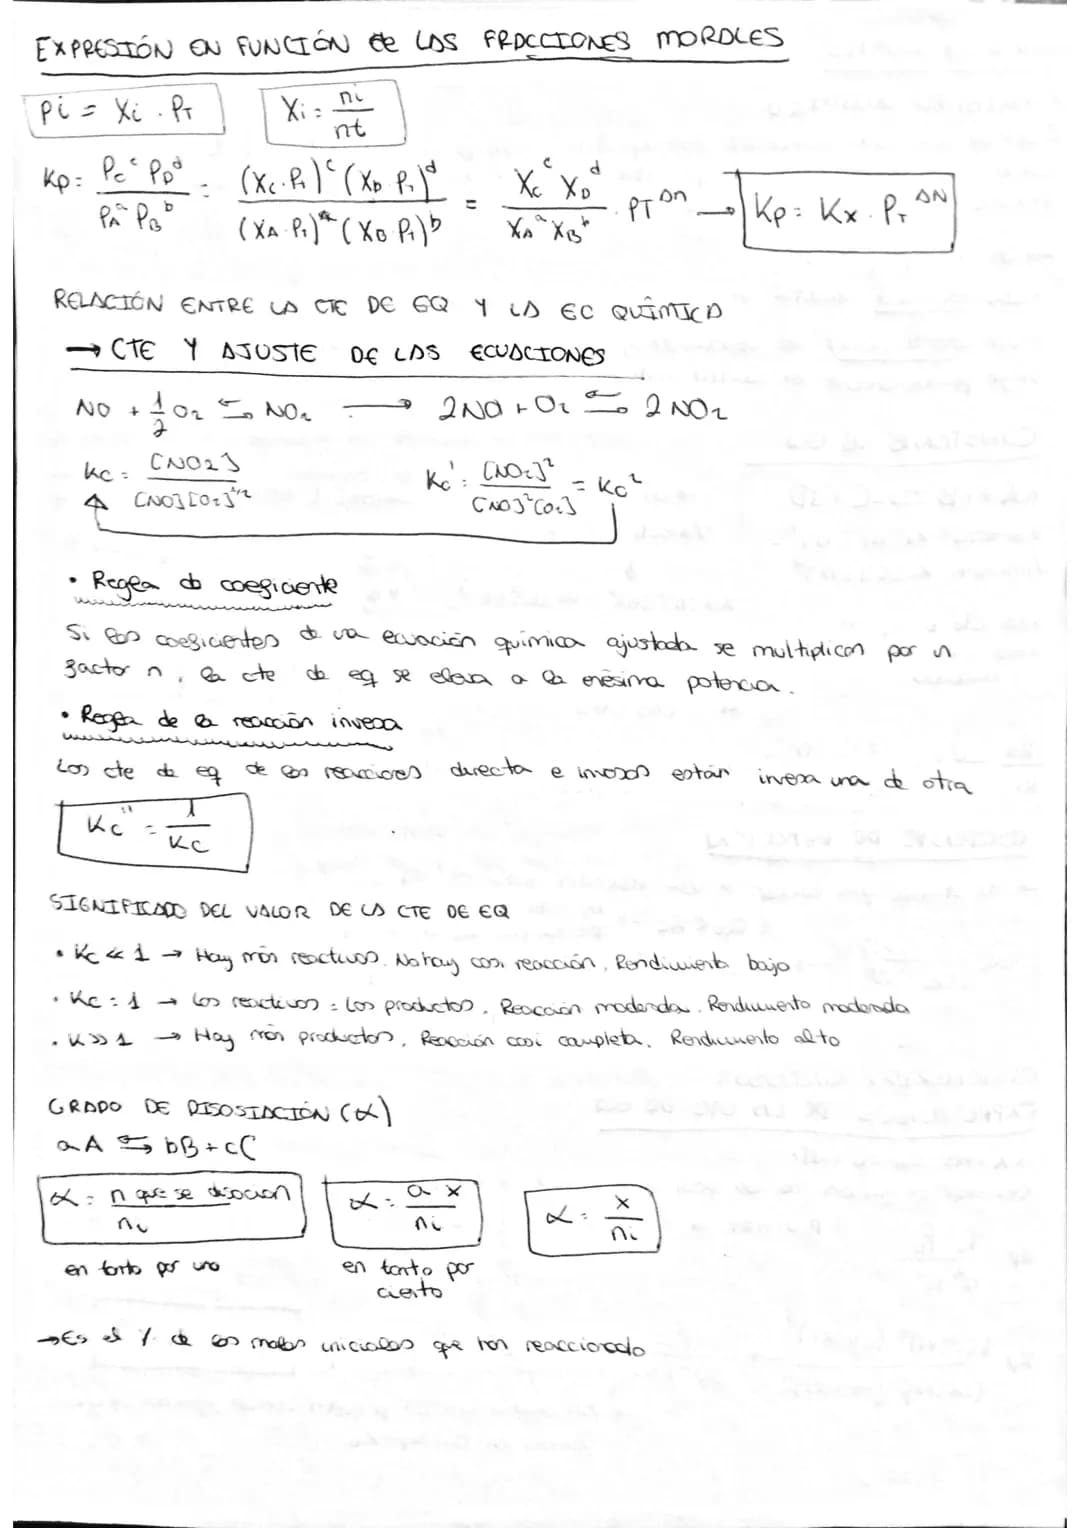 EXPRESIÓN EN FUNCIÓN de LAS FRACCIONES MORALES
Pi = Xi · PT   Xi = ni/nt
Kp = PC^c PD^d / PA^a PB^b = (XC·PT)^c (XD·PT)^d / (XA·PT)^a (XB·PT)^b = XC^c XD^d / XA^a XB^b · PT^Δn → Kp = Kx · PT^ΔN
RELACIÓN ENTRE LA CTE DE EQ Y LA EC QUÍMICA
→ CTE Y AJUSTE DE LAS ECUACIONES
NO + 1/2 O2 ⇆ NO2 → 2NO + O2 ⇆ 2NO2
Kc = [NO2] / [NO][O2]^1/2   Kc' = [NO2]^2 / [NO]^2[O2] = Kc^2
• Regla db coeficiente
Si los coeficientes d una ecuación química ajustada se multiplican por un
factor n, la cte de eq se eleva a la enésima potencia.
• Regla de la reacción inversa
Los cte de eq de las reacciones directa e inversas están inversa una de otra
Kc'' = 1/Kc
SIGNIFICADO DEL VALOR DE LA CTE DE EQ
• Kc << 1 → Hay más reactivos. No hay casi reacción, Rendimiento bajo
• Kc = 1 → Los reactivos = Los productos, Reacción moderada. Rendimiento moderada
• K >> 1 → Hay más productos, Reacción casi completa. Rendimiento alto
GRADO DE DISOSIACIÓN (α)
aA ⇆ bB + cC
α = n que se disocian / ni   α = a x / ni   α = x / ni
en tanto por uno   en tanto por ciento
→ Es el % de los moles iniciales que han reaccionado